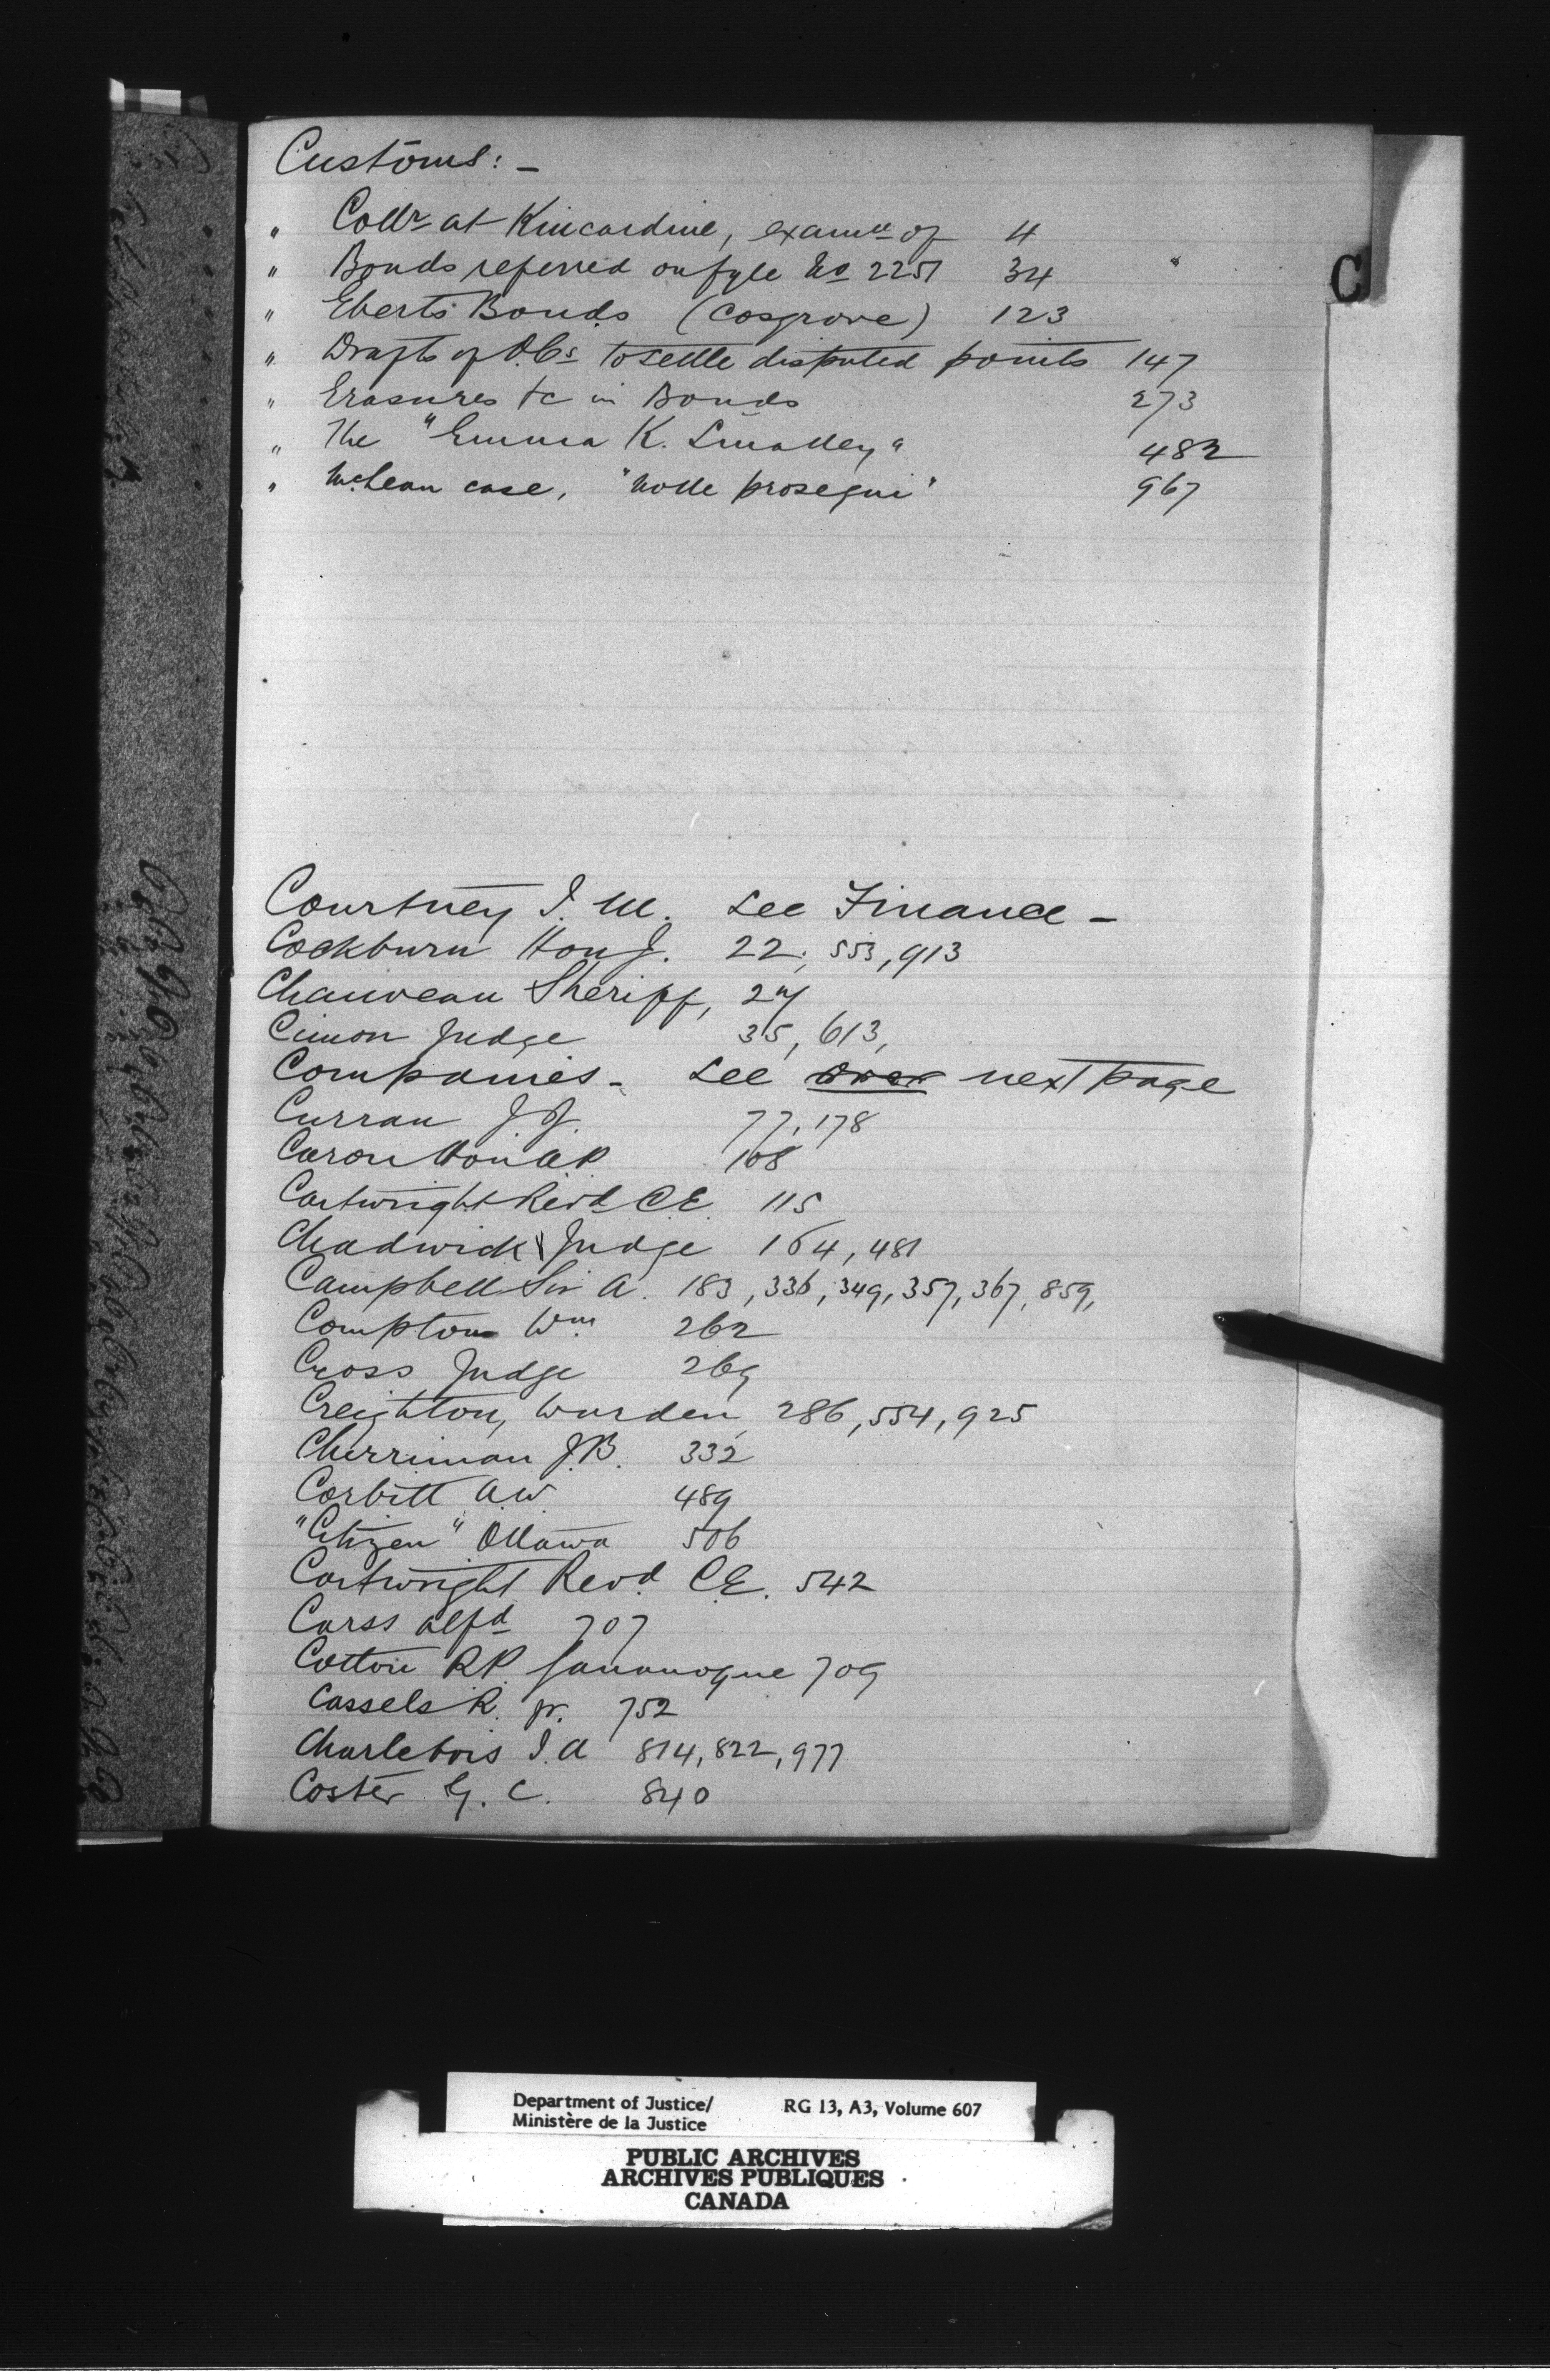 Customs: -
" Collr at Kincardine, examn of 4
" Bonds referred on fyle No 2251 34
" Eberts Bonds (Cosgrove) 123
" Drafts of O.Cs to settle disputed points 147
" Erasures &c in Bonds 273
" The "Emma K. Smalley" 482
" McLean case, "nolle prosequi" 967
C
Courtney J. M. See Finance -
Cockburn Hon J. 22, 553, 913
Chauveau Sheriff, 27
Cimon Judge 35, 613,
Companies - See over next page
Curran J. J. 77, 178
Caron Hon A P 108
Cartwright Revd C E. 115
Chadwick Judge 164, 481
Campbell Sir A. 183, 336, 349, 357, 367, 859,
Compton Wm 262
Cross Judge 269
Creighton, Warden, 286, 554, 925
Cherriman J.B. 332
Corbitt A.W. 489
"Citizen" Ottawa 506
Cartwright Revd C.E. 542
Carss Alfd 707
Cotton R.P. Gananoque 709
Cassels R. jr. 752
Charlebois J. A 814, 822, 977
Coster G. C. 840
Department of Justice/ RG 13, A3, Volume 607
Ministère de la Justice
PUBLIC ARCHIVES
ARCHIVES PUBLIQUES
CANADA